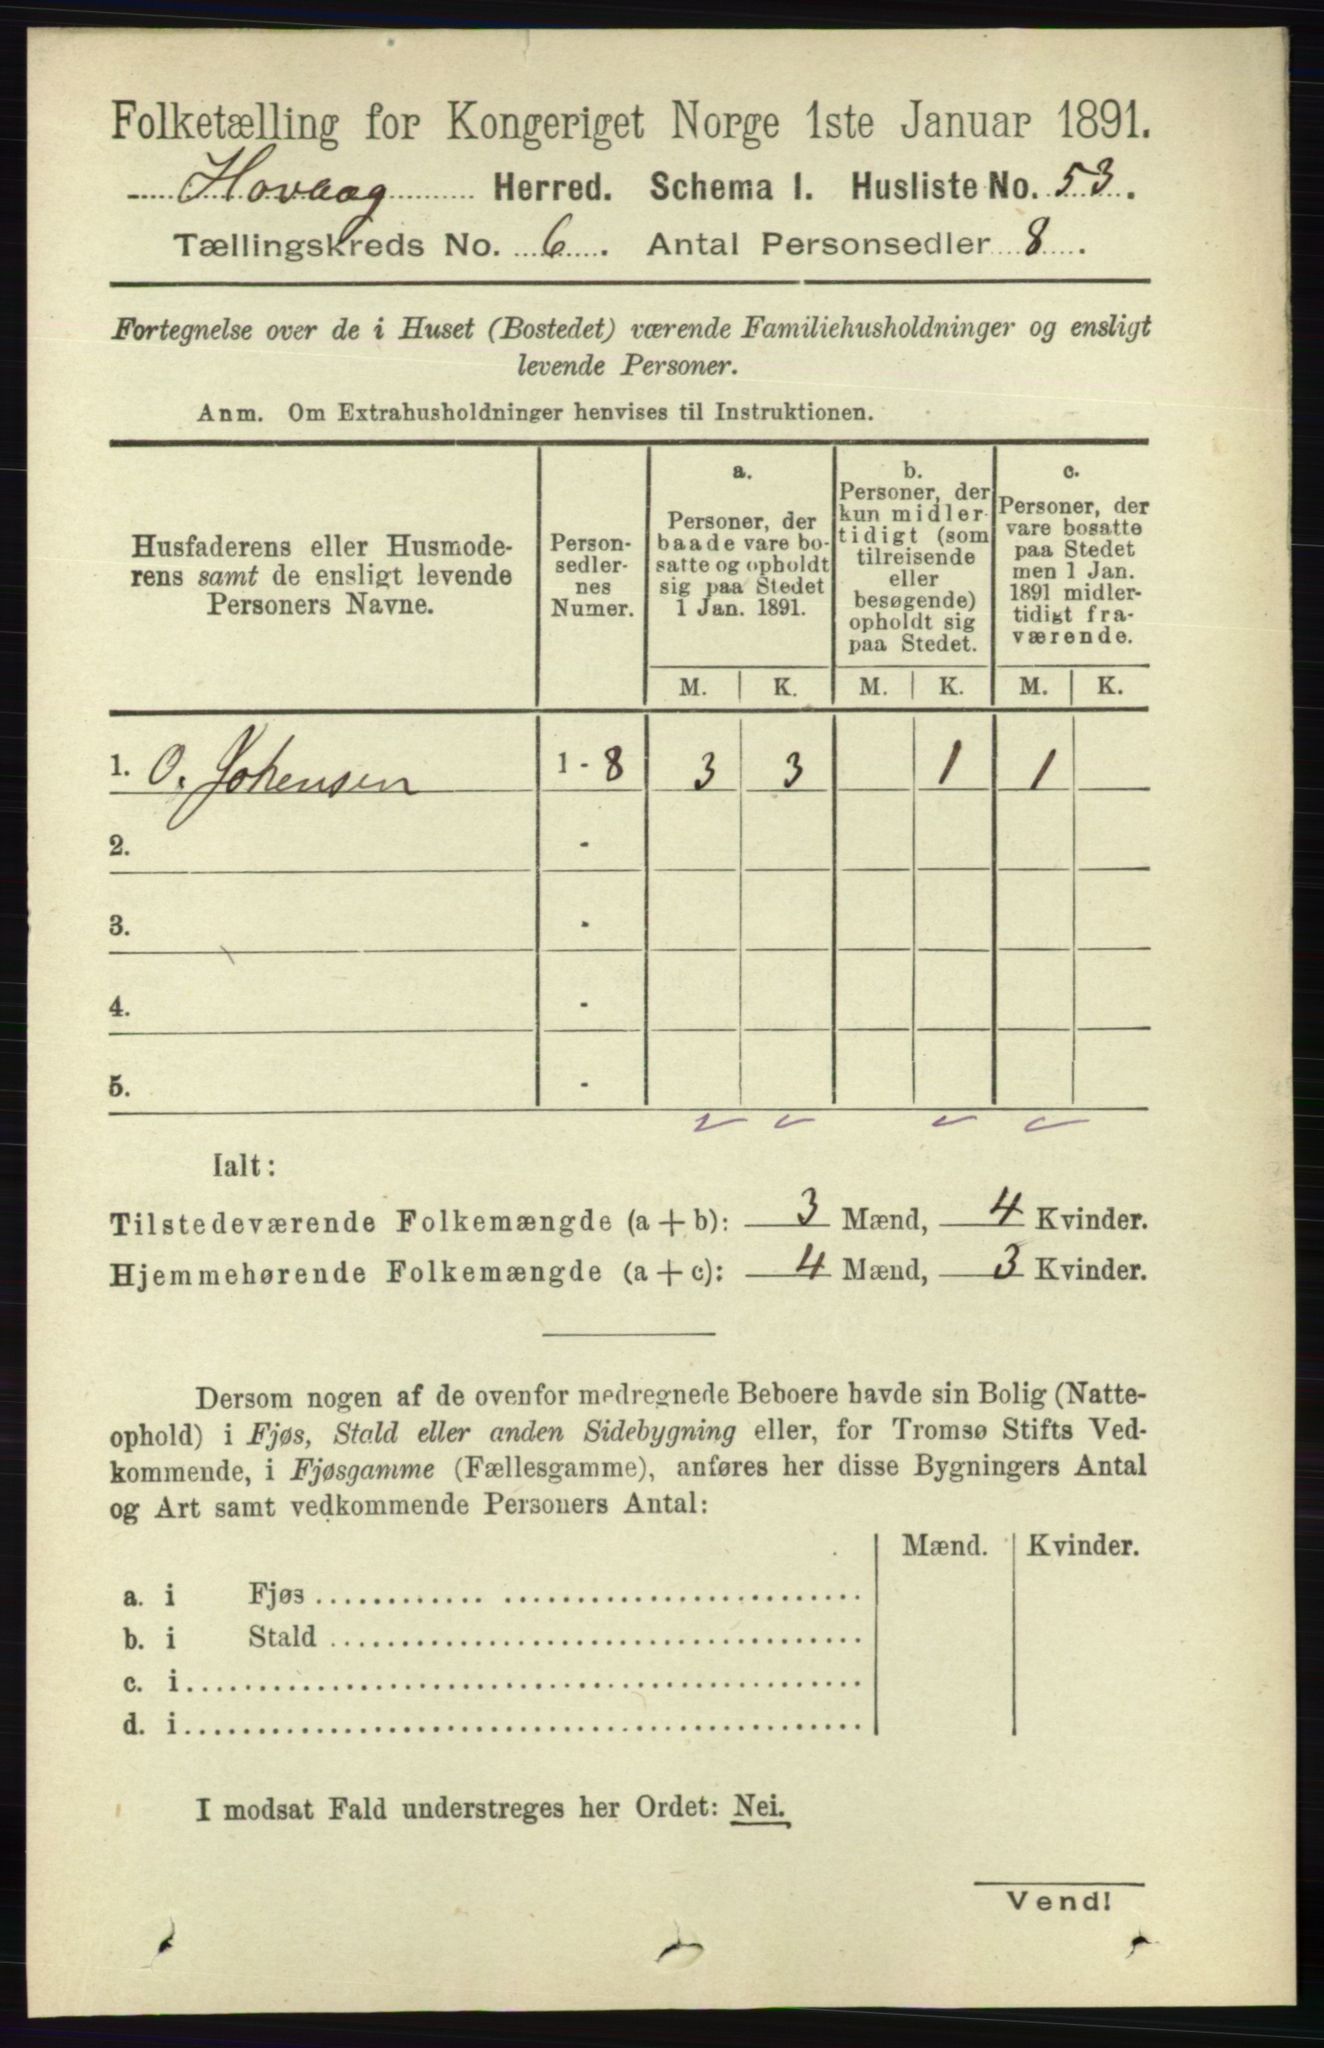 Folketælling for Kongeriget Norge 1ste Januar 1891.
Hovaag Herred. Schema I. Husliste No. 53.
Tællingskreds No. 6. Antal Personsedler 8.
Fortegnelse over de i Huset (Bostedet) værende Familiehusholdninger og ensligt
levende Personer.
Anm. Om Extrahusholdninger henvises til Instruktionen.
Husfaderens eller Husmode-
rens samt de ensligt levende
Personers Navne.
Person-
sedler-
nes
Numer.
a.
Personer, der
baade vare bo-
satte og opholdt
sig paa Stedet
1 Jan. 1891.
b.
Personer, der
kun midler-
tidigt (som
tilreisende
eller
besøgende)
opholdt sig
paa Stedet.
c.
Personer, der
vare bosatte
paa Stedet
men 1 Jan.
1891 midler-
tidigt fra-
værende.
M. K. M. K. M. K.
1. O. Johensen 1 - 8 3 3 1 1
2. -
3. -
4. -
5. -
Ialt:
Tilstedeværende Folkemængde (a + b): 3 Mænd, 4 Kvinder.
Hjemmehørende Folkemængde (a + c): 4 Mænd, 3 Kvinder.
Dersom nogen af de ovenfor medregnede Beboere havde sin Bolig (Natte-
ophold) i Fjøs, Stald eller anden Sidebygning eller, for Tromsø Stifts Ved-
kommende, i Fjøsgamme (Fællesgamme), anføres her disse Bygningers Antal
og Art samt vedkommende Personers Antal:
Mænd. Kvinder.
a. i Fjøs
b. i Stald
c. i
d. i
I modsat Fald understreges her Ordet: Nei.
Vend!